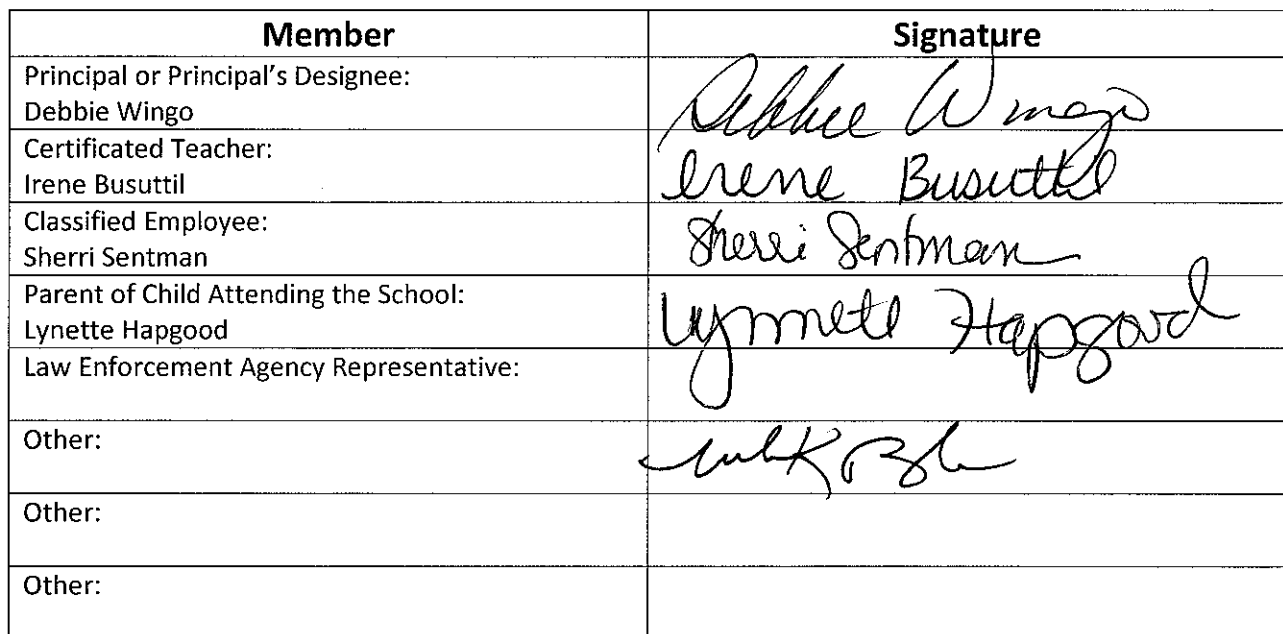 Member Signature
Principal or Principal's Designee:
Debbie Wingo Debbie Wingo
Certificated Teacher:
Irene Busuttil Irene Busuttil
Classified Employee:
Sherri Sentman Sherri Sentman
Parent of Child Attending the School:
Lynette Hapgood Lynnete Hapgood
Law Enforcement Agency Representative:
Other:
Other:
Other: